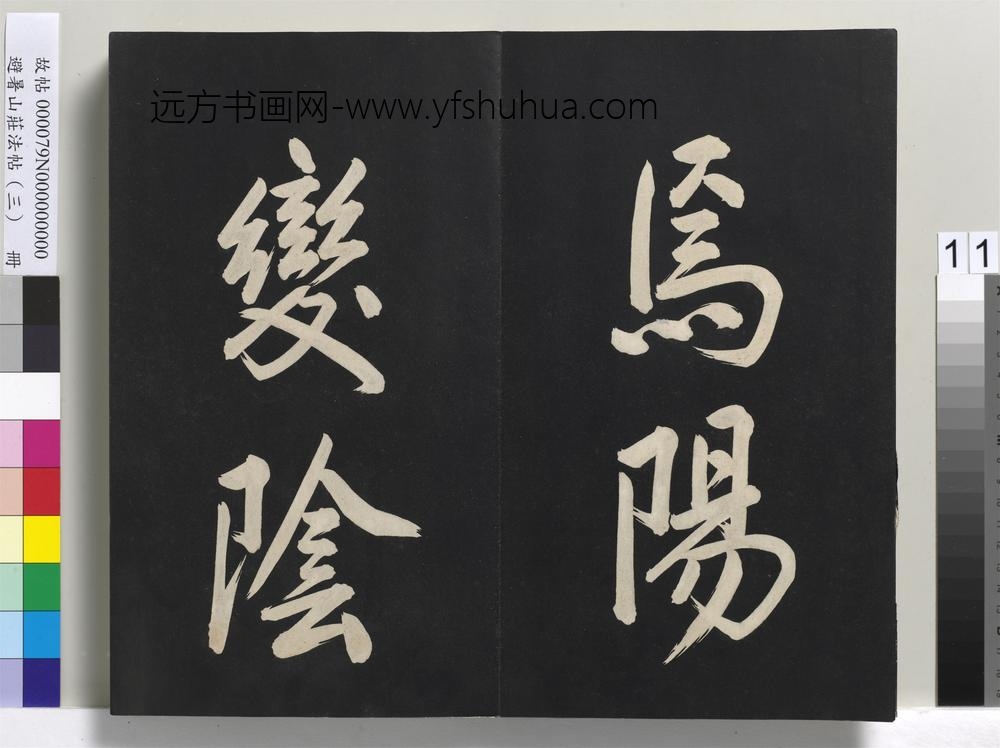 远方书画网-www.yfshuhua.com
焉陽
變陰
故帖 000079N000000000
避暑山莊法帖（三） 冊
11